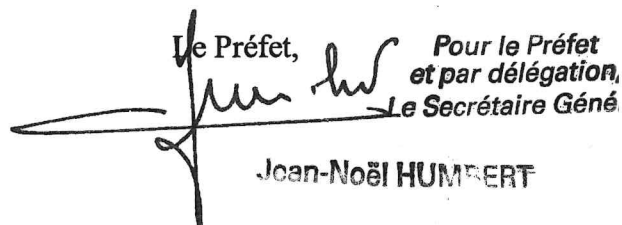 Le Préfet,
Pour le Préfet
et par délégation,
Le Secrétaire Géné
Jean-Noël HUMBERT